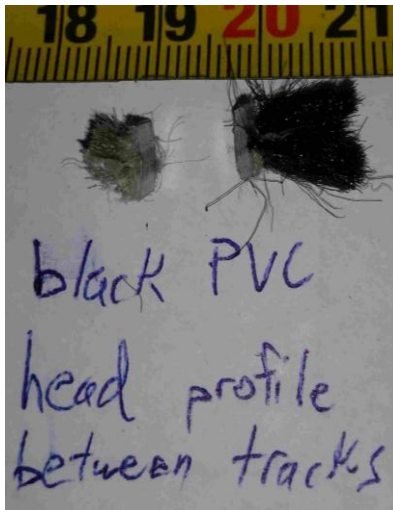 18 19 20 21
black PVC
head profile
between tracks